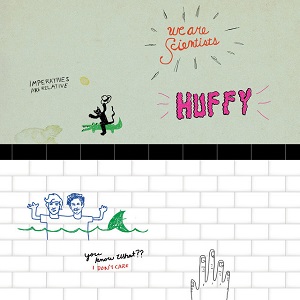 we are
Scientists
IMPERATIVES
ARE RELATIVE
HUFFY
you
know What??
I DON'T CARE